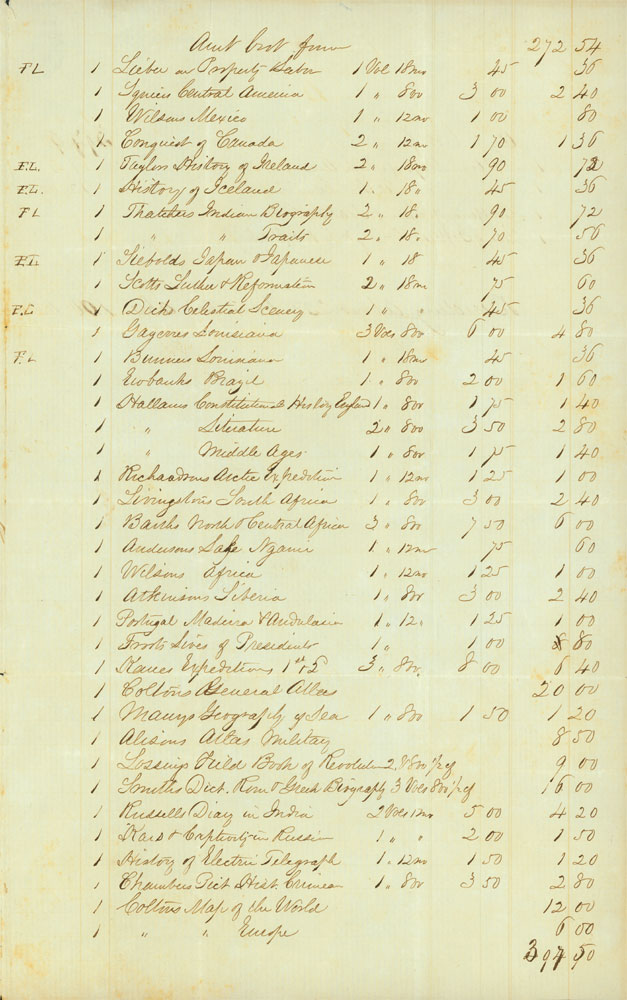 Amt brot from 272 54
F L 1 Lieber on Property & Labor 1 Vol 18mo 45 36
1 Squiers Central America 1 " 8vo 3 00 2 40
1 Wilsons Mexico 1 " 12mo 1 00 80
1 Conquest of Canada 2 " 12mo 1 70 1 36
F.L. 1 Taylors History of Ireland 2 " 18mo 90 72
F.L. 1 History of Iceland 1 " 18 " 45 36
F L 1 Thatchers Indian Biography 2 " 18 " 90 72
1 " " Traits 2 " 18 " 70 56
F.L. 1 Siebolds Japan & Japanese 1 " 18 45 36
1 Scotts Luther & Reformation 2 " 18mo 75 60
F.L 1 Dicks Celestial Scenery 1 " " 45 36
1 Gayerres Louisiana 3 Vols 8vo 6 00 4 80
F. L 1 Bunners Louisiana 1 " 18mo 45 36
1 Ewbanks Brazil 1 " 8vo 2 00 1 60
1 Hallams Constitutional History England 1 " 8vo 1 75 1 40
1 " Literature 2 " 8vo 3 50 2 80
1 " Middle Ages 1 " 8vo 1 75 1 40
1 Richardsons Arctic Expedition 1 " 12mo 1 25 1 00
1 Livingstons South Africa 1 " 8vo 3 00 2 40
1 Barths North & Central Africa 3 " 8vo 7 50 6 00
1 Andersons Lake Ngami 1 " 12mo 75 60
1 Wilsons Africa 1 " 12mo 1 25 1 00
1 Atkinsons Siberia 1 " 8vo 3 00 2 40
1 Portugal Madeira & Andalusia 1 " 12 " 1 25 1 00
1 Frosts Lives of Presidents 1 " 1 00 80
1 Kanes Expeditions 1st & 2 3 " 8vo 8 00 6 40
1 Coltons General Atlas 20 00
1 Maurys Geography of Sea 1 " 8vo 1 50 1 20
1 Alisons Atlas Military 8 50
1 Lossings Field Book of Revolution 2 V 8vo 1/2 cf 9 00
1 Smiths Dict. Rom & Greek Biography 3 Vols 8vo 1/2 cf 16 00
1 Russells Diary in India 2 Vols 12mo 5 00 4 20
1 & Captivity in Russia 1 " " 2 00 1 50
1 History of Electric Telegraph 1 " 12mo 1 50 1 20
1 Chambers Pict. Hist. Crimean 1 " 8vo 3 50 2 80
1 Coltons Map of the World 12 00
1 " " Europe 6 00
50